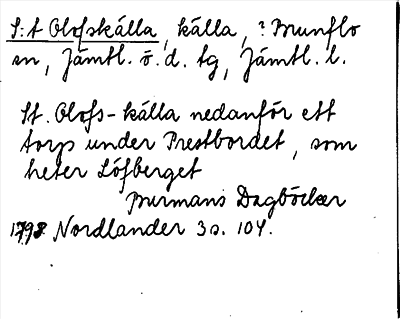 S:t Olofskälla, källa, ? Brunflo
sn, Jämtl. ö. d. tg, Jämtl. l.
St. Olofs-källa nedanför ett
torp under Prestbordet, som
heter Löfberget
Burmans Dagböcker
1798. Nordlander 3 s. 104.